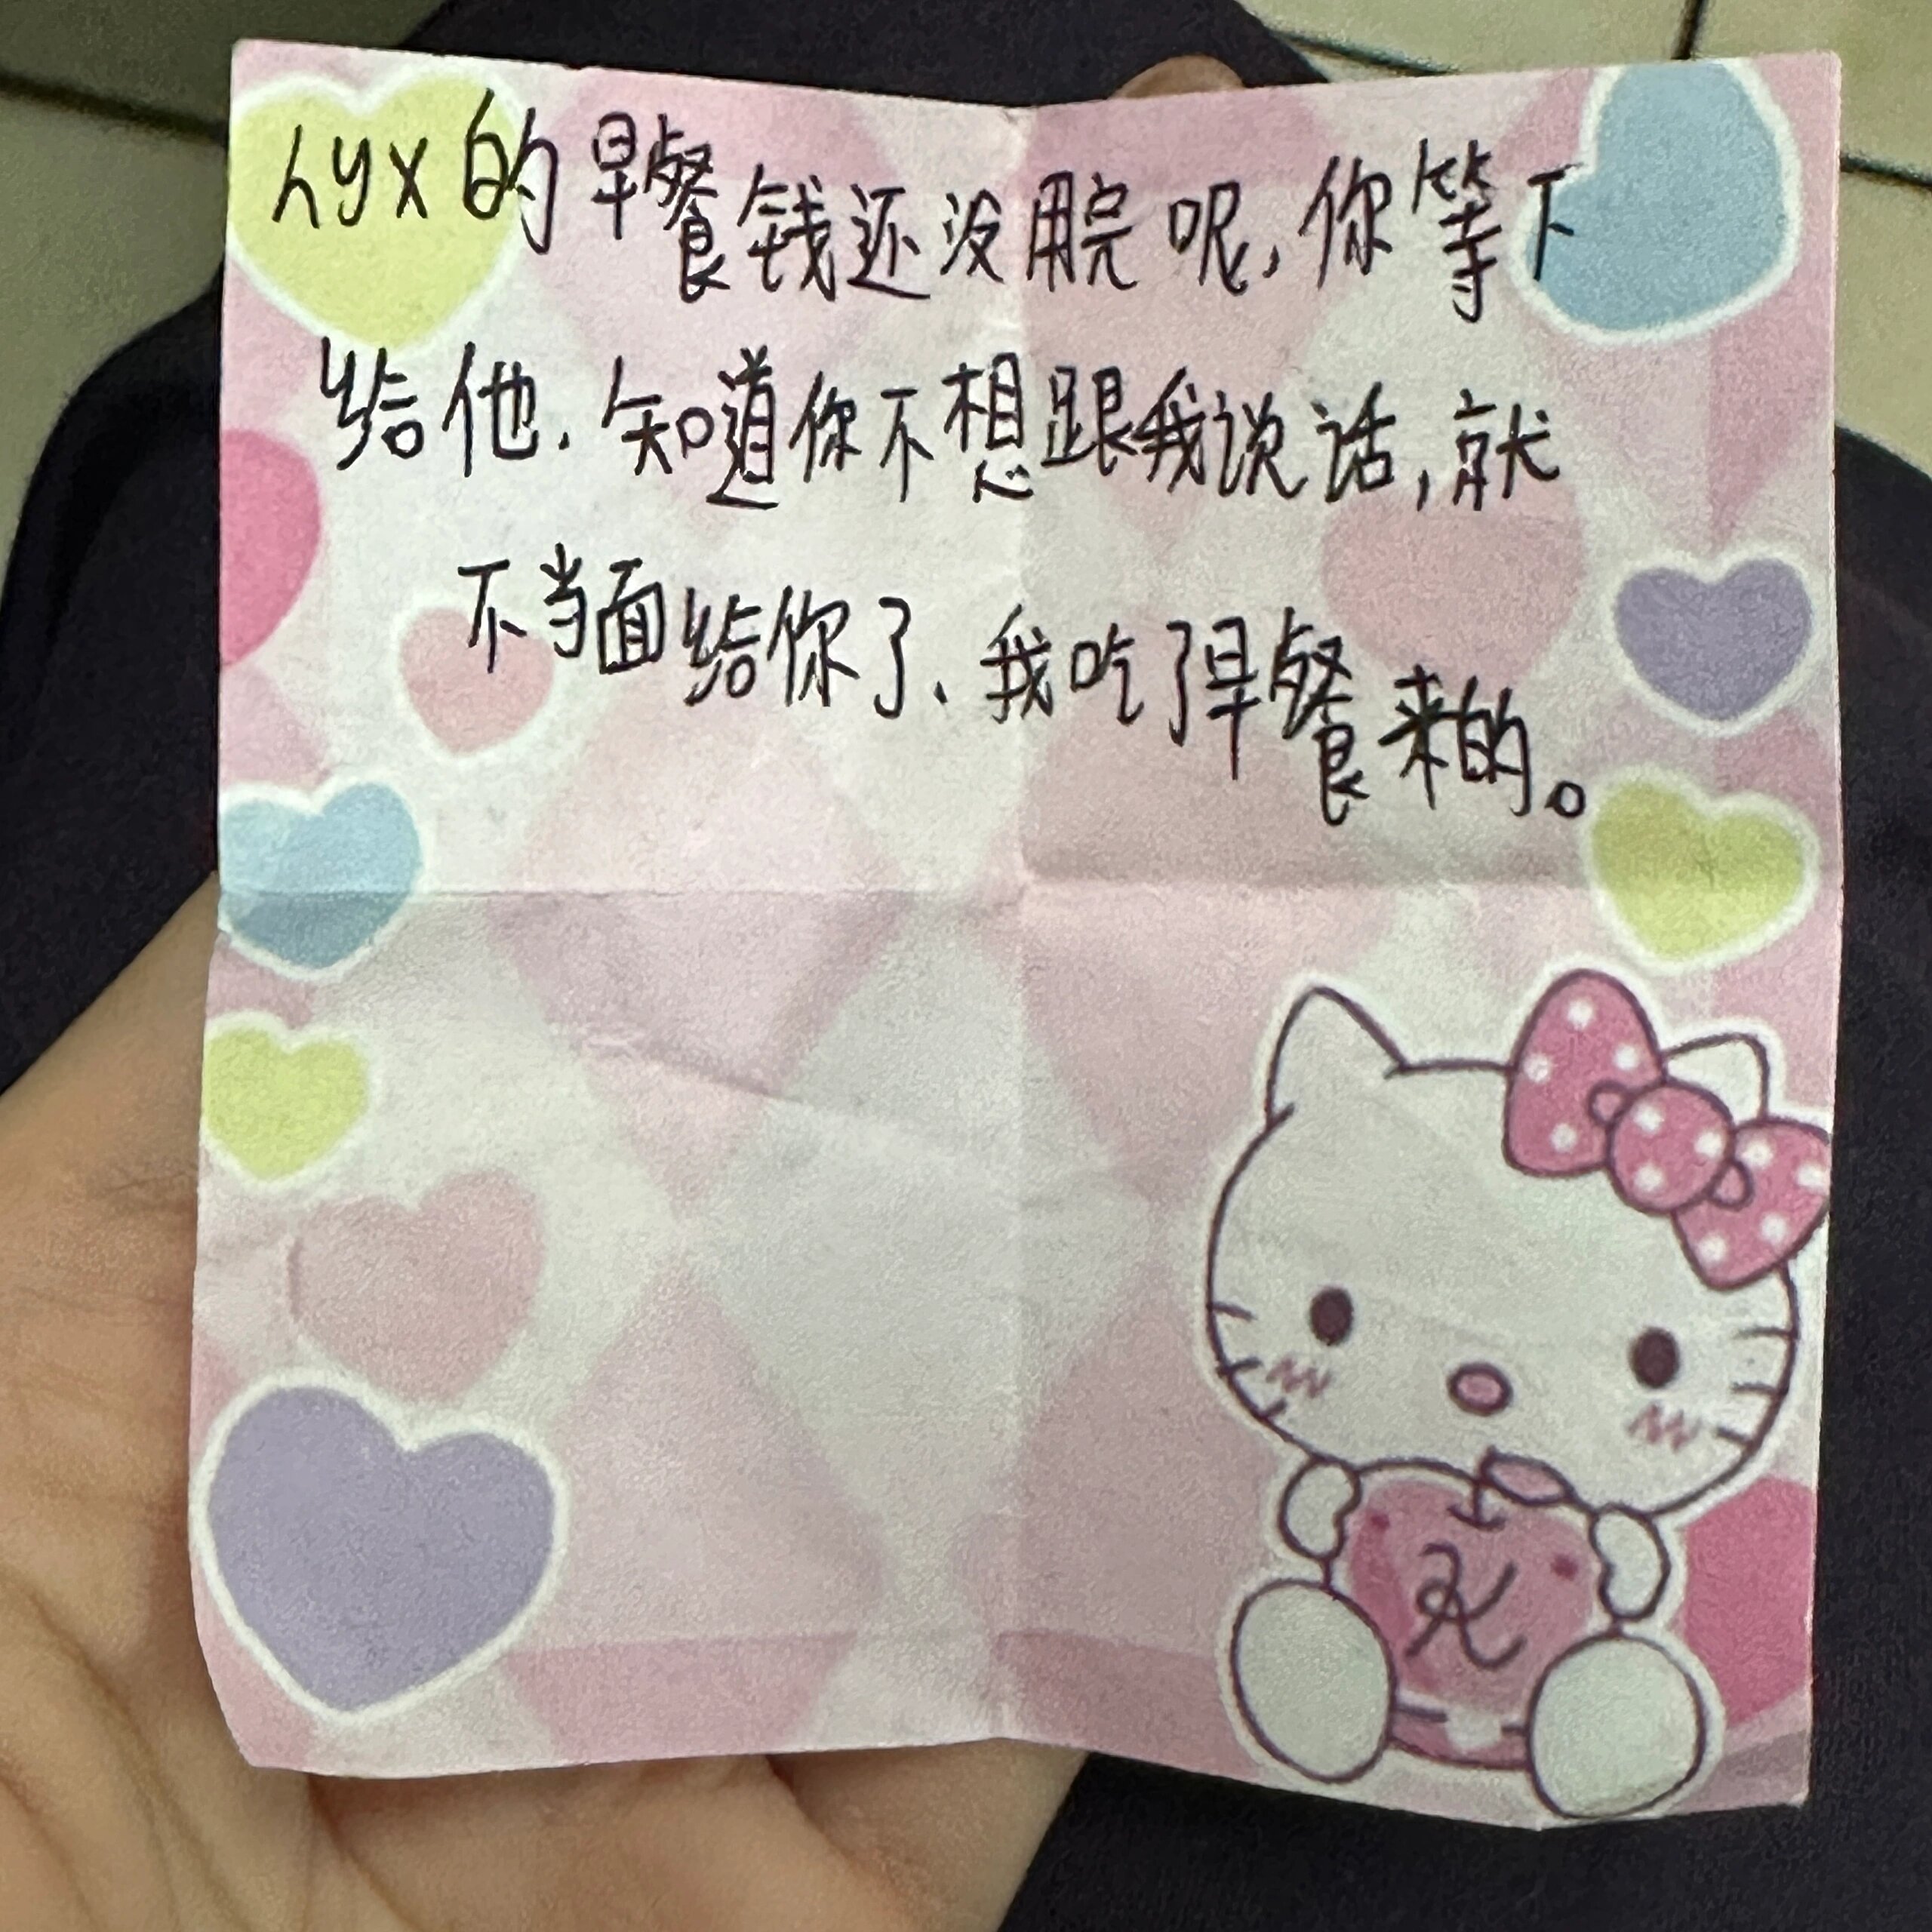 hyx的早餐钱还没用完呢,你等下
给他.知道你不想跟我说话,就
不当面给你了、我吃了早餐来的。